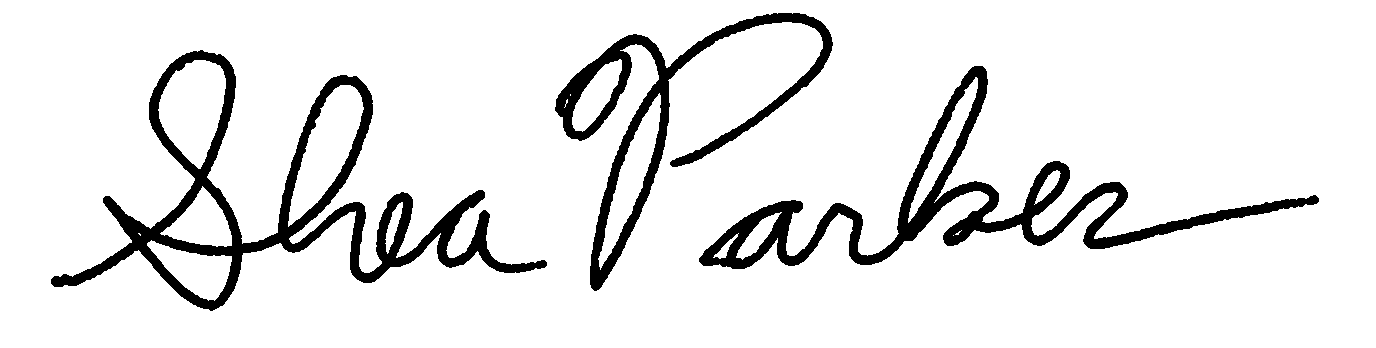 Shea Parker